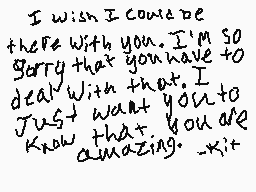 I wish I could be
there with you. I'm so
sorry that you have to
deal with that. I
Just want you to
know that you are
amazing. -Kit